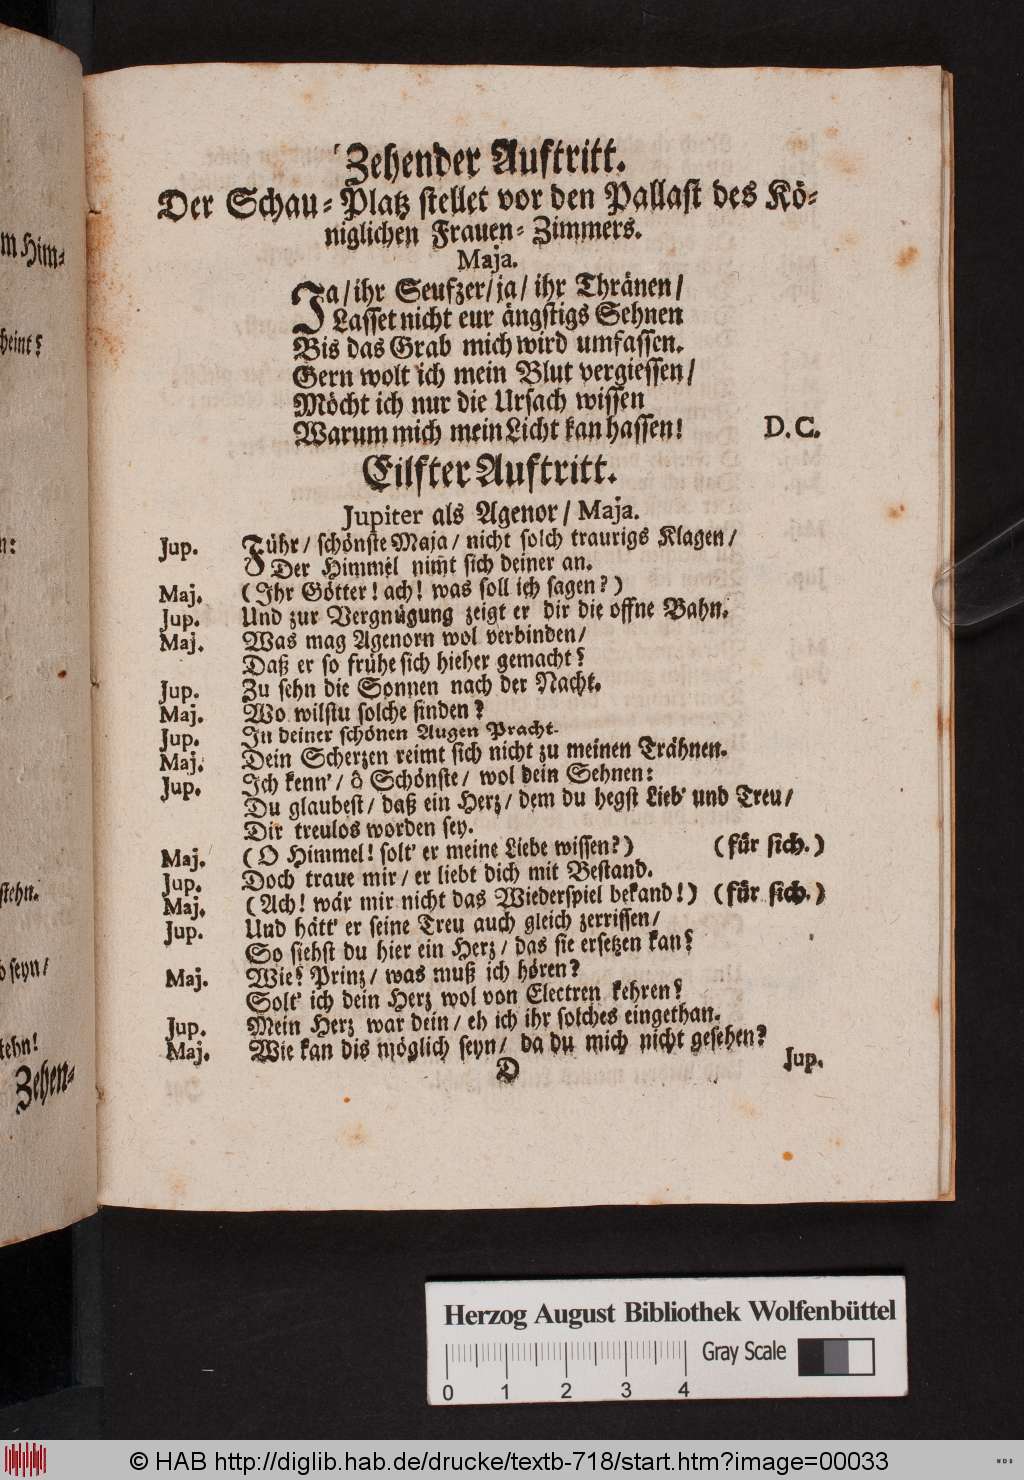 m Him-
heint?
n:
stehn.
o seyn/
tehn!
Zehen-
Zehender Auftritt.
Der Schau-Platz stellet vor den Pallast des Kö-
niglichen Frauen-Zimmers.
Maja.
Ja/ ihr Seufzer/ ja/ ihr Thränen/
Lasset nicht eur ängstigs Sehnen
Bis das Grab mich wird umfassen.
Gern wolt ich mein Blut vergiessen/
Möcht ich nur die Ursach wissen
Warum mich mein Licht kan hassen! D. C.
Eilfter Auftritt.
Jupiter als Agenor/ Maja.
Jup. Führ/ schönste Maja/ nicht solch traurigs Klagen/
Der Himmel nim̅t sich deiner an.
Maj. (Ihr Götter! ach! was soll ich sagen?)
Jup. Und zur Vergnügung zeigt er dir die offne Bahn.
Maj. Was mag Agenorn wol verbinden/
Daß er so frühe sich hieher gemacht?
Jup. Zu sehn die Sonnen nach der Nacht.
Maj. Wo wilstu solche finden?
Jup. In deiner schönen Augen Pracht.
Maj. Dein Scherzen reimt sich nicht zu meinen Trähnen.
Jup. Ich kenn'/ ô Schönste/ wol dein Sehnen:
Du glaubest/ daß ein Herz/ dem du hegst Lieb' und Treu/
Dir treulos worden sey.
Maj. (O Himmel! solt' er meine Liebe wissen?) (für sich.)
Jup. Doch traue mir/ er liebt dich mit Bestand.
Maj. (Ach! wär mir nicht das Wiederspiel bekand!) (für sich.)
Jup. Und hätt' er seine Treu auch gleich zerrissen/
So siehst du hier ein Herz/ das sie ersetzen kan?
Maj. Wie? Prinz/ was muß ich hören?
Solt' ich dein Herz wol von Electren kehren?
Jup. Mein Herz war dein/ eh ich ihr solches eingethan.
Maj. Wie kan dis möglich seyn/ da du mich nicht gesehen?
D Jup.
Herzog August Bibliothek Wolfenbüttel
Gray Scale
0 1 2 3 4
© HAB http://diglib.hab.de/drucke/textb-718/start.htm?image=00033